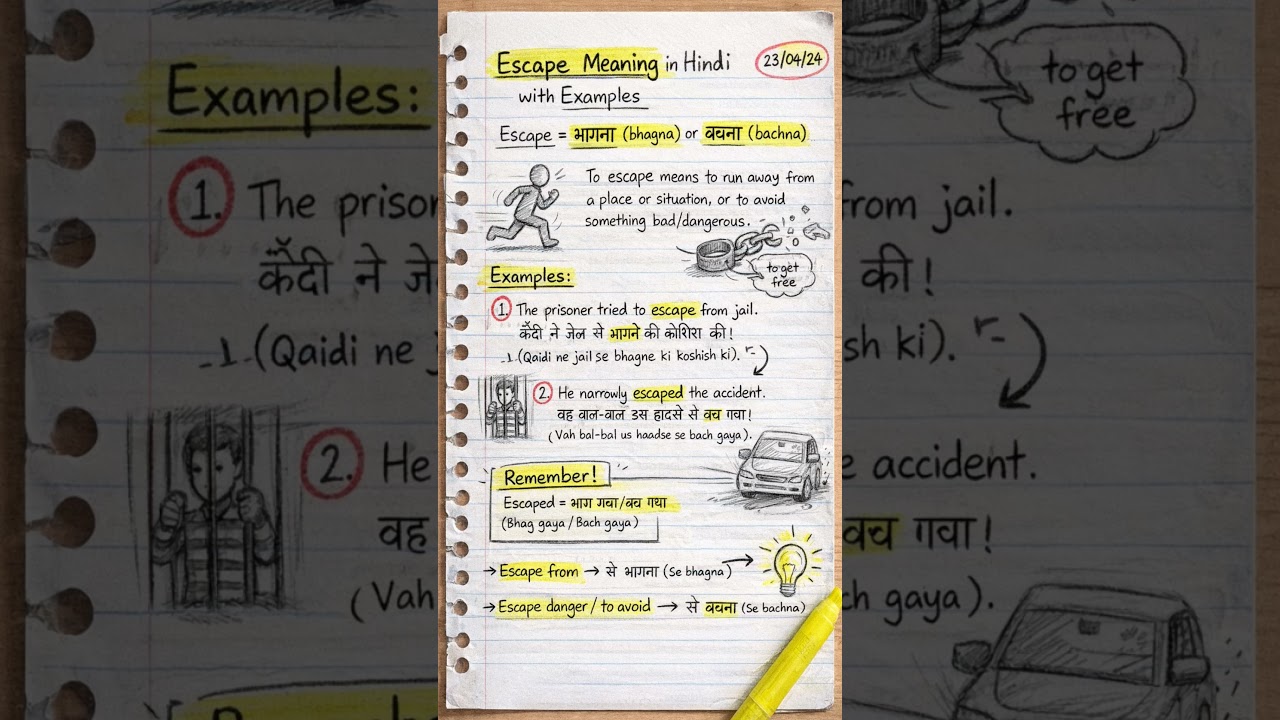 Escape Meaning in Hindi
23/04/24
with Examples
Escape = भागना (bhagna) or वचना (bachna)
To escape means to run away from
a place or situation, or to avoid
something bad/dangerous.
to get
free
Examples:
1. The prisoner tried to escape from jail.
कैॅदी ने जेल से भागने की कोशिरा की!
(Qaidi ne jail se bhagne ki koshish ki).
2. He narrowly escaped the accident.
वह वाल-वाल उस हादसे से वच गवा!
(Vah bal-bal us haadse se bach gaya).
Remember!
Escaped = भाग गवा/वच गया
(Bhag gaya / Bach gaya)
→ Escape from → से भागना (Se bhagna) →
→ Escape danger / to avoid → से वचना (Se bachna)
Examples:
1. The prison
कैॅदी ने जे
(Qaidi ne
2. He
वह
(Vah
to get
free
from jail.
की!
sh ki).
accident.
वच गवा!
ch gaya).